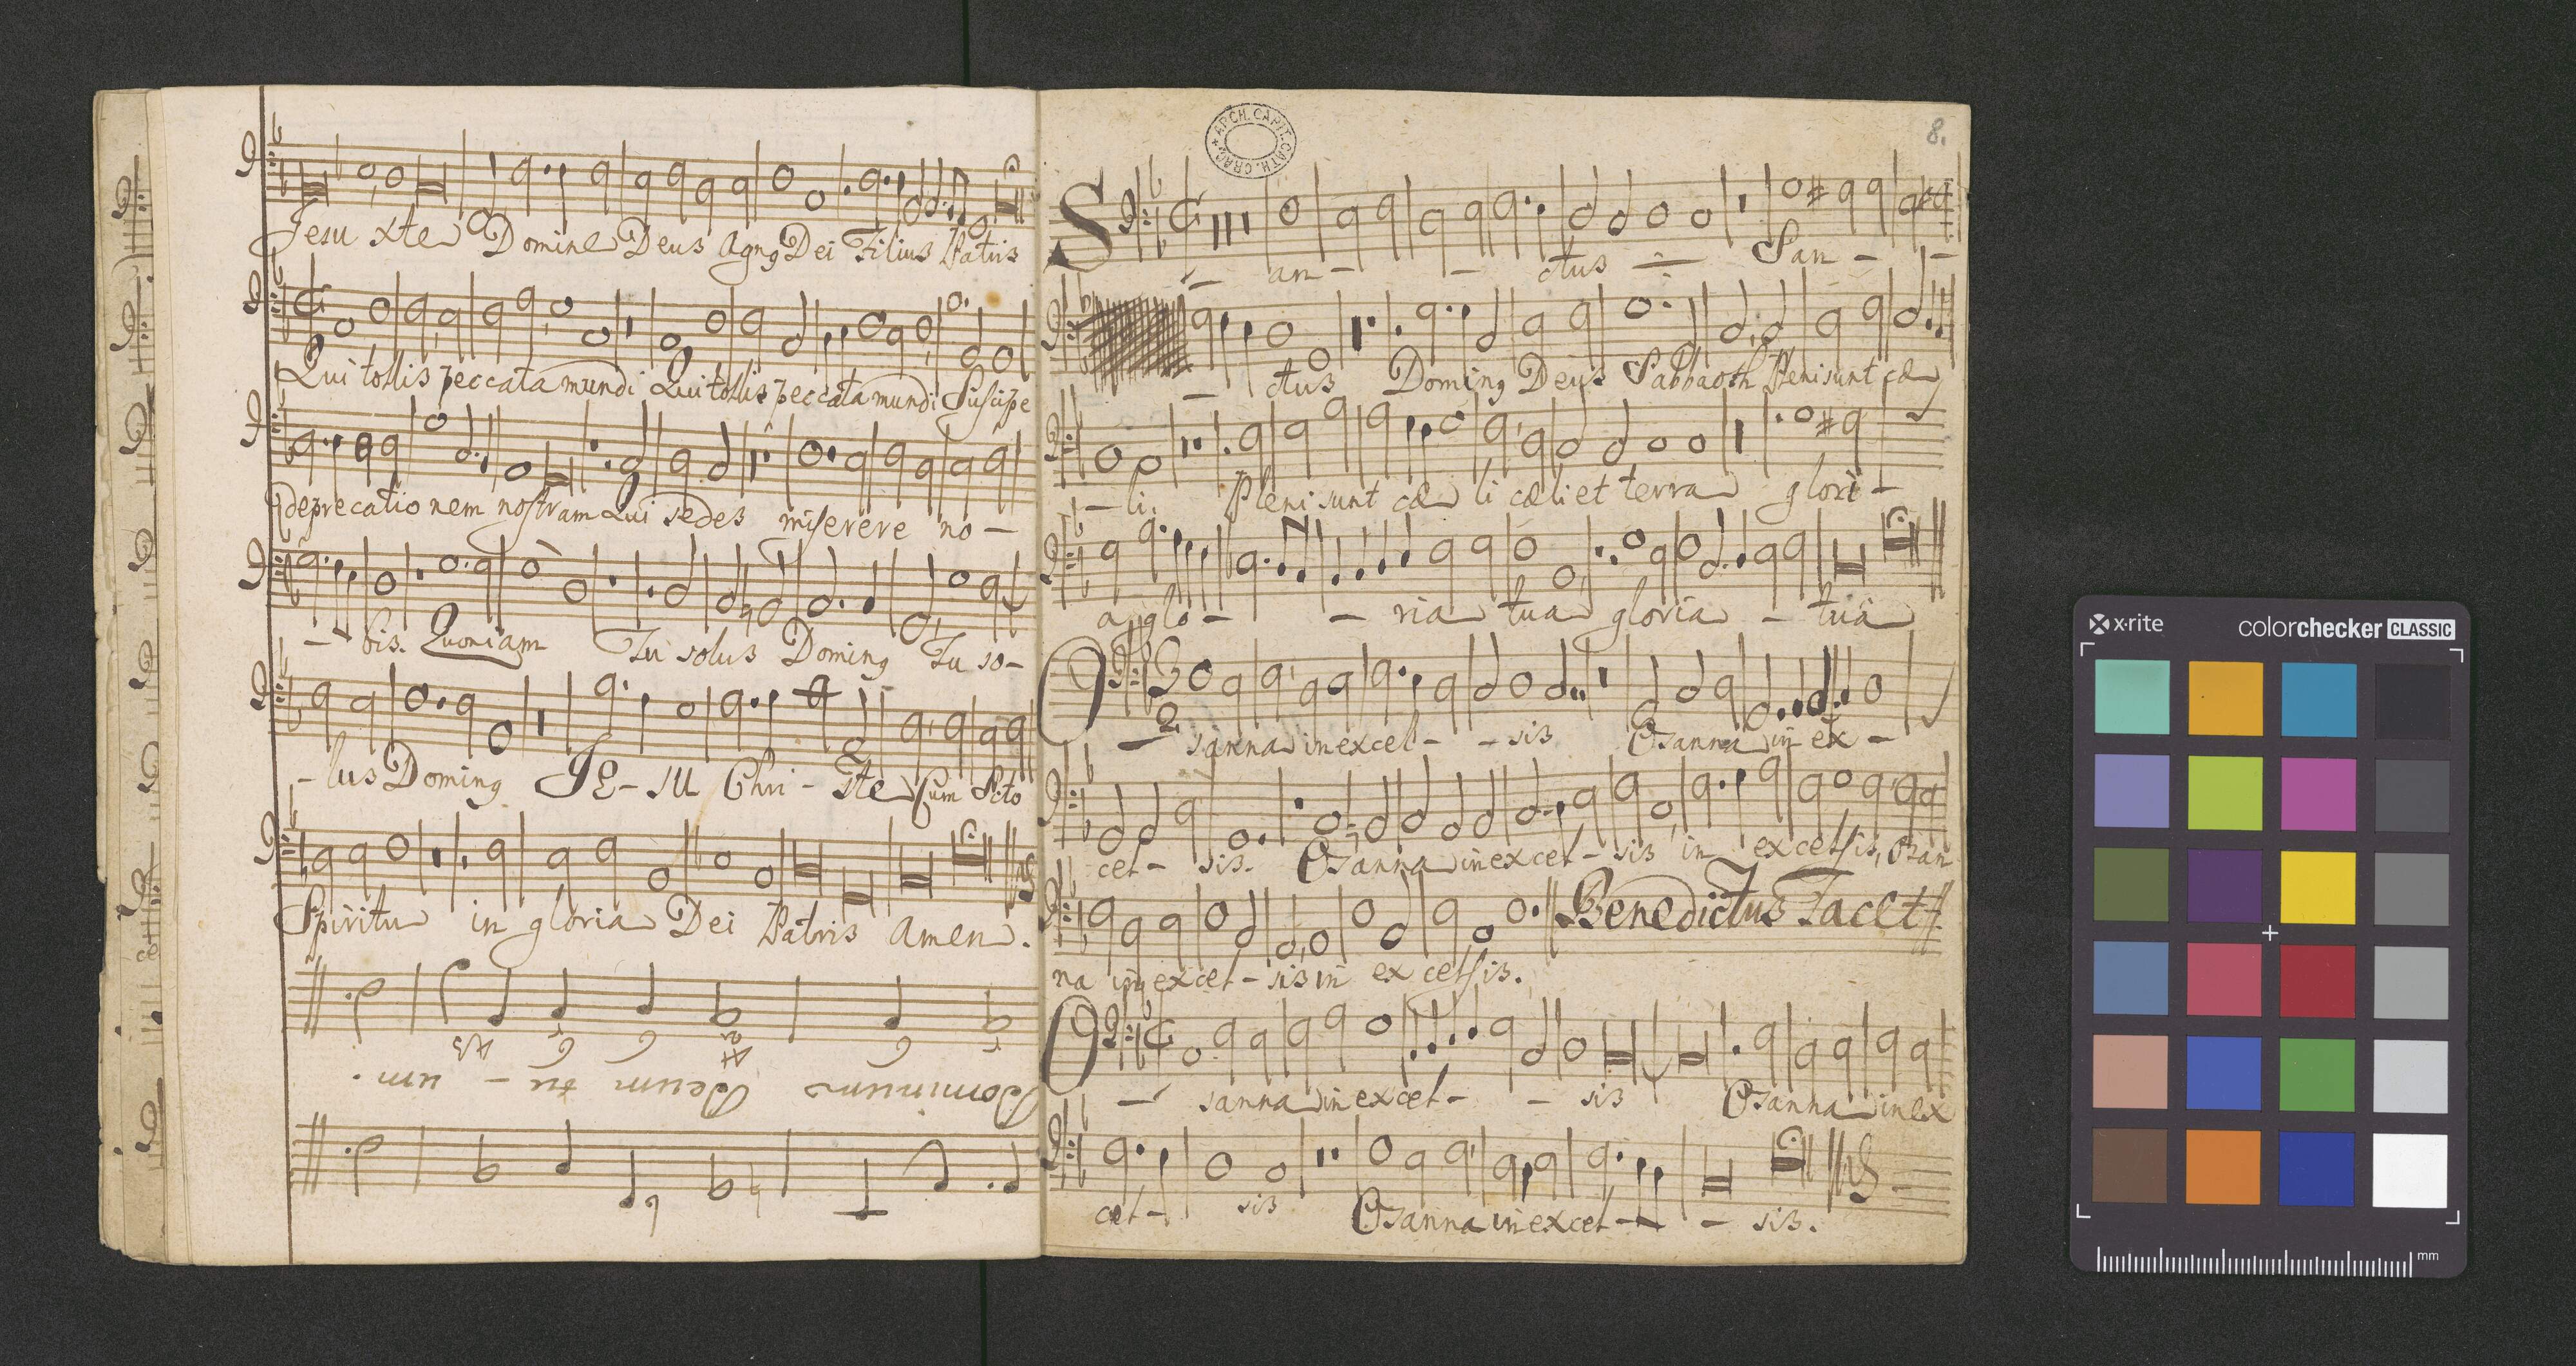 Jesu xte Domine Deus Agng Dei Filius Patris
Qui tollis peccata mundi Qui tollis peccata mundi Suscipe
deprecatio nem nostram Qui sedes miserere no -
- bis. Quoniam Tu solus Doming Tu so-
- lus Doming JE - SU Chri - Ste Cum Scto
Spiritu in gloria Dei Patris Amen.
Dominum Deum tu - um.
ARCH. CAPIT. CATH. CRAC.
8.
S - an - - ctus San - -
- ctus Doming Deus Sabbaoth Pleni sunt cæ
- li. Pleni sunt cæ li cæli et terra glori -
a glo - - ria tua gloria - tua
O - sanna in excel - - sis Osanna in ex -
cel - sis. Osanna in excel - sis in excelsis, Osan
na in excel - sis in excelsis. Benedictus Tacet
O - sanna in excel - - sis Osanna in ex
cel - sis Osanna in excel - - sis.
x-rite
colorchecker CLASSIC
mm